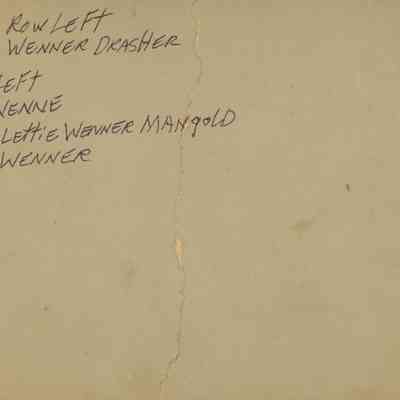 Row Left
Wenner Drasher
Left
Wenne
Lettie Wenner Mangold
Wenner